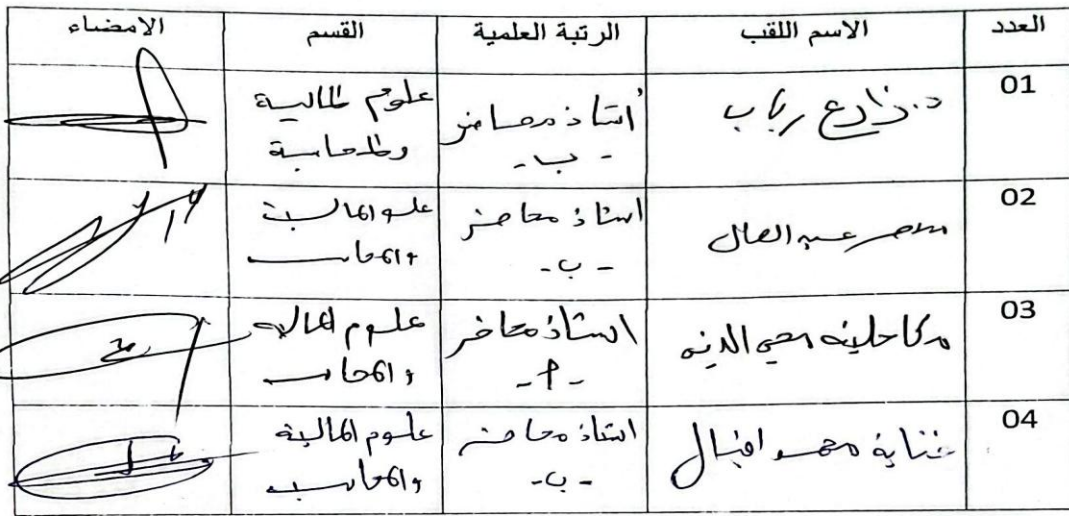 العدد الاسم اللقب الرتبة العلمية القسم الامضاء
01 د. زارع رباب أستاذ محاضر علوم المالية
- ب - والمحاسبة
02 عبد العالي استاذ محاضر علوم المالية
- ب - والمحاسبة
03 مكاحلية محي الدين استاذ محاضر علوم المالية
- أ - والمحاسبة
04 محمد اقبال استاذ محاضر علوم المالية
- ب - والمحاسبة